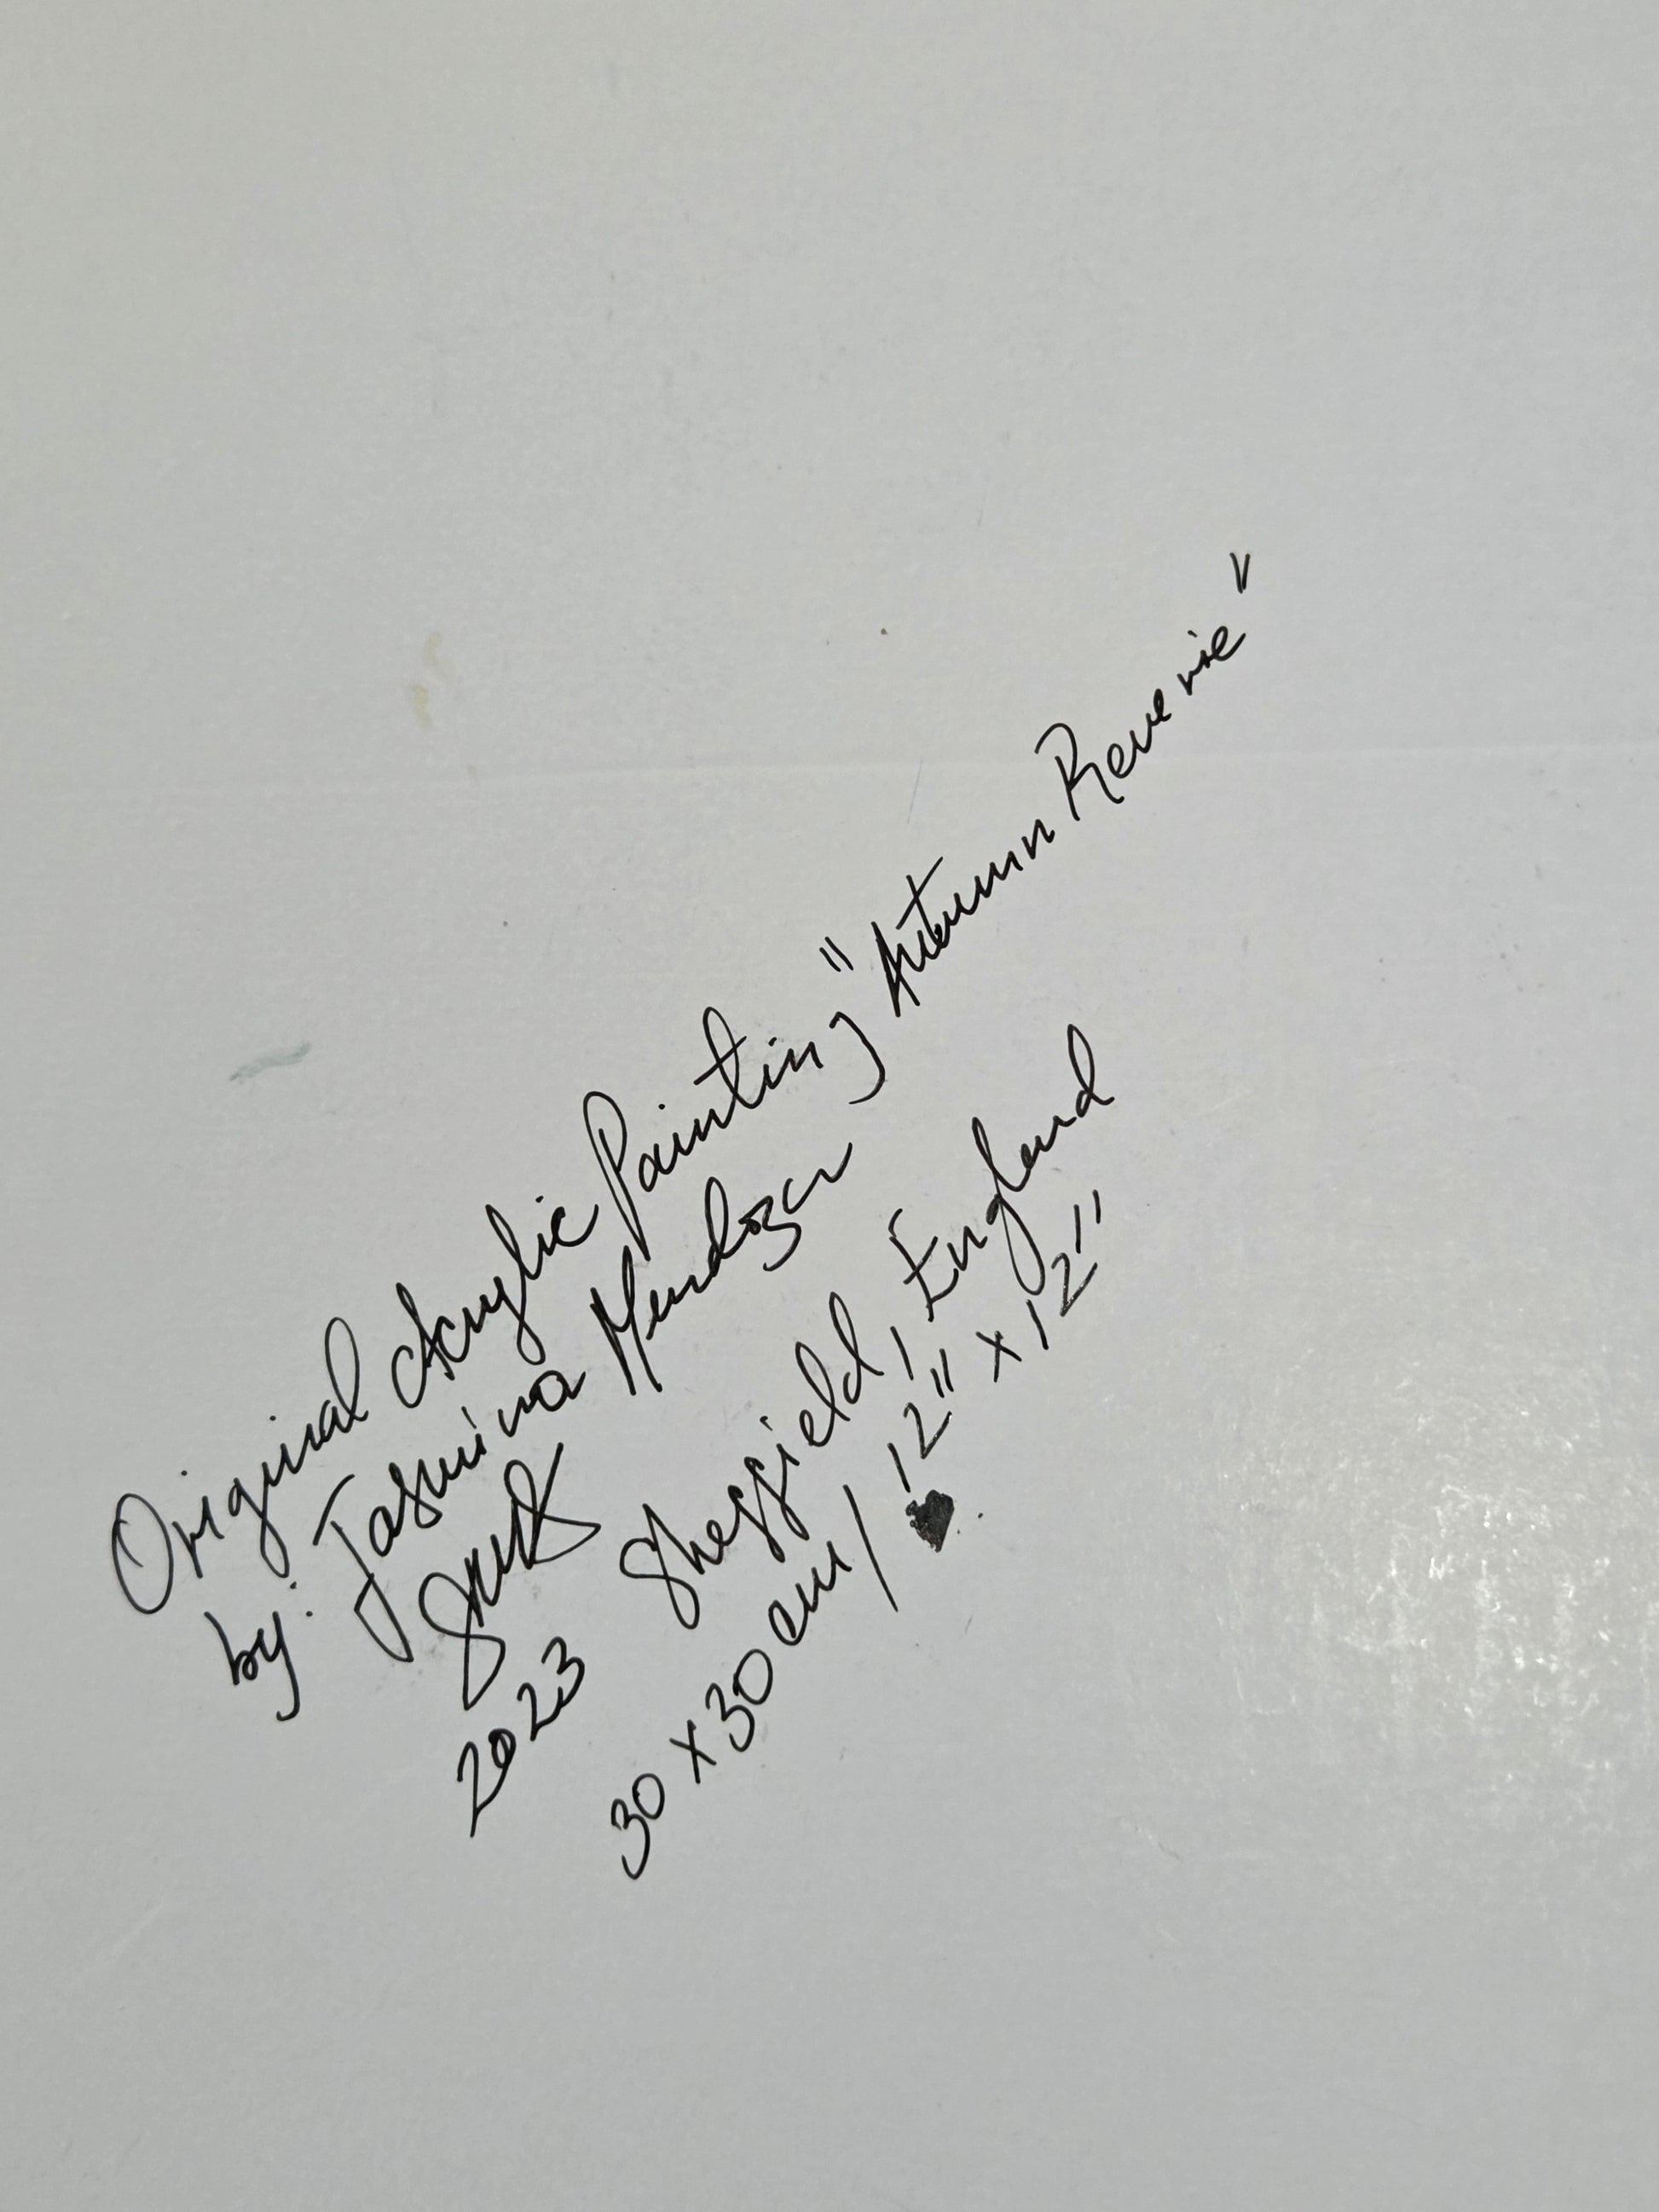 Original Acrylic Painting "Autumn Reverie"
by: Jasmina Mendoza
2023 Sheffield, England
30 x 30 cm / 12" x 12"